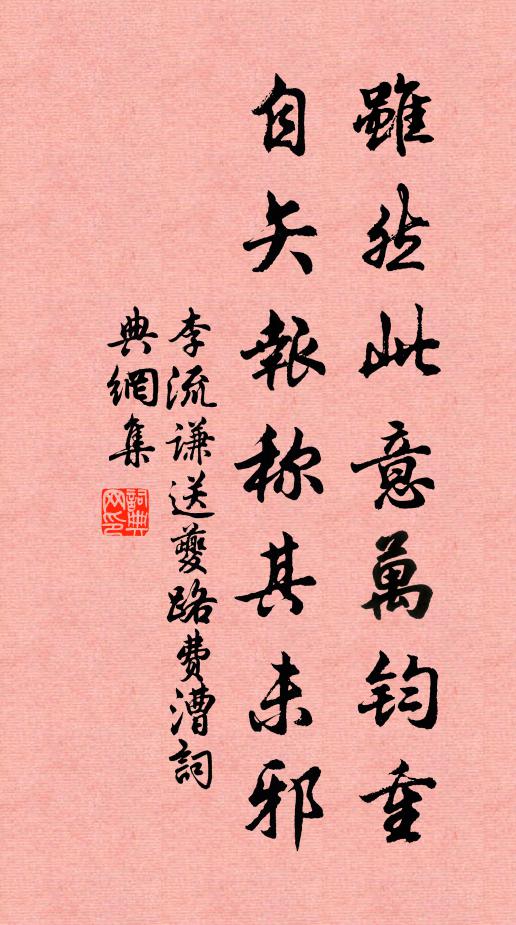 雖然此意萬鈞重
自矢報称其未邪
李流謙送夔路費漕詞
典網集
詞典網印